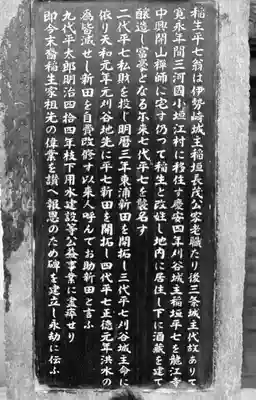 稲生平七翁は伊勢崎城主稲垣長茂公家老職たり後三条城主代故ありて
寛永年間三河國小垣江村に移住す慶安四年刈谷城主稲垣平七を龍江寺
中興開山禅師に宅す仍つて稲生と改姓し地内に居住し下に酒蔵を建て
醸造し富豪となる尓来七代平七を襲名す
二代平七私財を投し明暦三年東浦新田を開拓し三代平七刈谷城主命に
依り天和元年元刈谷地先に平七新田を開拓し四代平七正徳元年洪水の
為皆滅せし新田を自費改修す以来人呼んでお助新田と言ふ
九代平太郎明治四拾四年枝下用水建設等公益事業に盡瘁せり
即今末裔稲生家祖先の偉業を讃へ報恩のため碑を建立し永劫に伝ふ